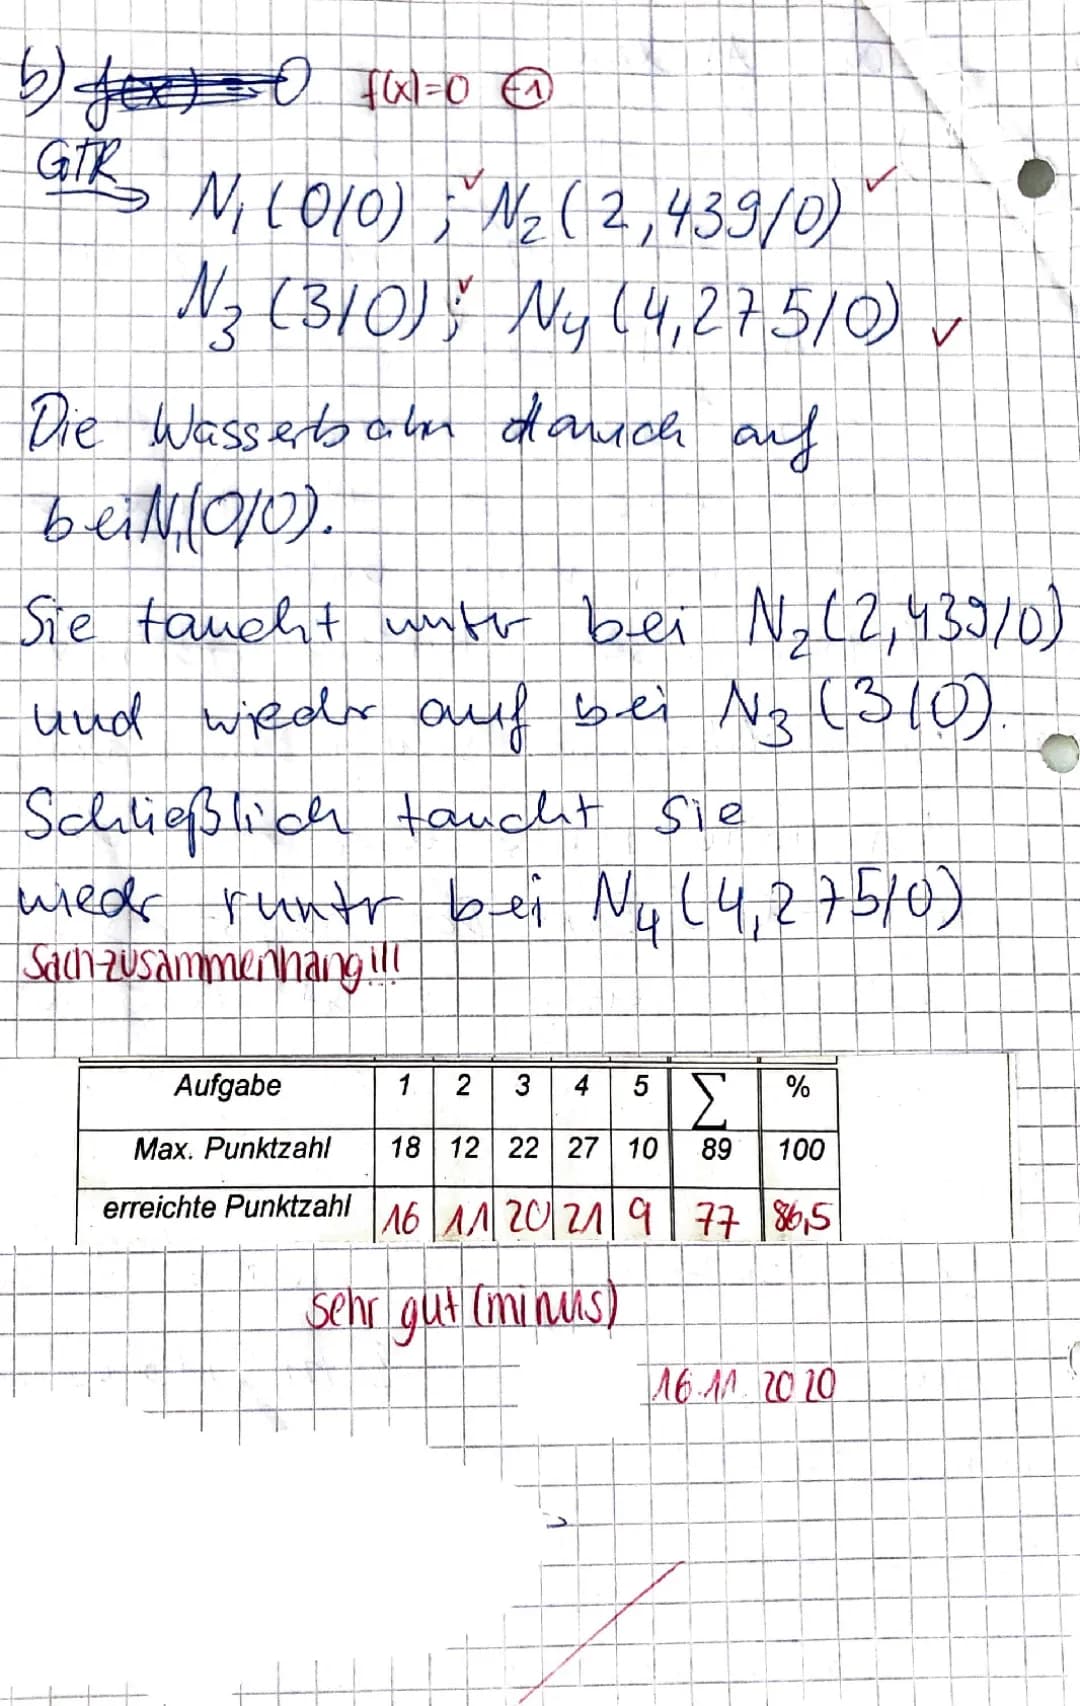 b) f(x) = 0 f(x)=0 (-1)
GTR
N₁(0/0) ; N₂(2,439/0)
N₃(3/0) ; N₄(4,275/0)
Die Wasserbahn tauch auf
bei N₁(0/0).
Sie taucht untr bei N₂(2,439/0)
und wiedr auf bei N₃(3/0).
Schließlich taucht sie
wiedr runtr bei N₄(4,275/0)
Sachzusammenhang!!!
Aufgabe 1 2 3 4 5 Σ %
Max. Punktzahl 18 12 22 27 10 89 100
erreichte Punktzahl 16 11 20 21 9 77 86,5
sehr gut (minus)
16.11.2020